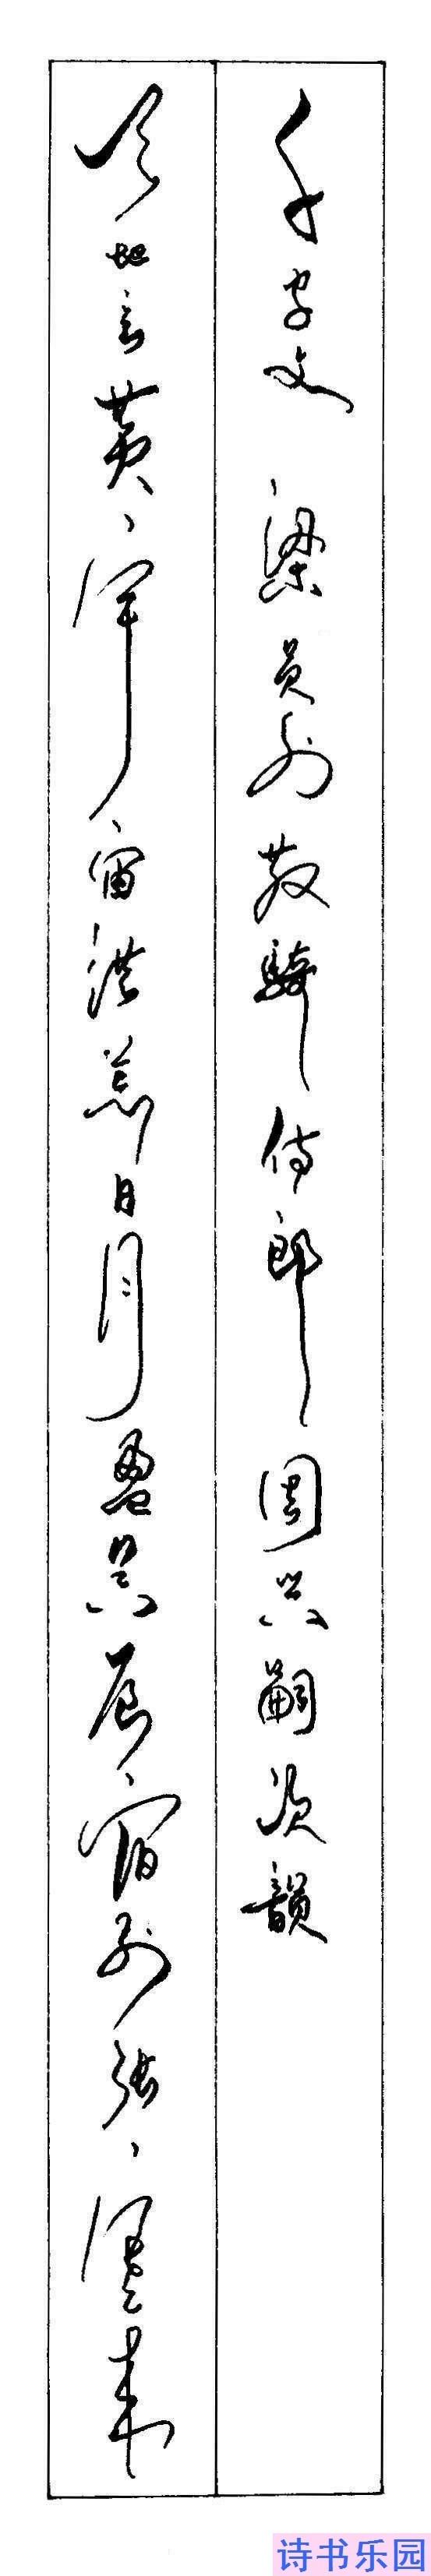 千字文 梁员外散骑侍郎周兴嗣次韵
天地玄黄宇宙洪荒日月盈昃辰宿列张寒来
诗书乐园